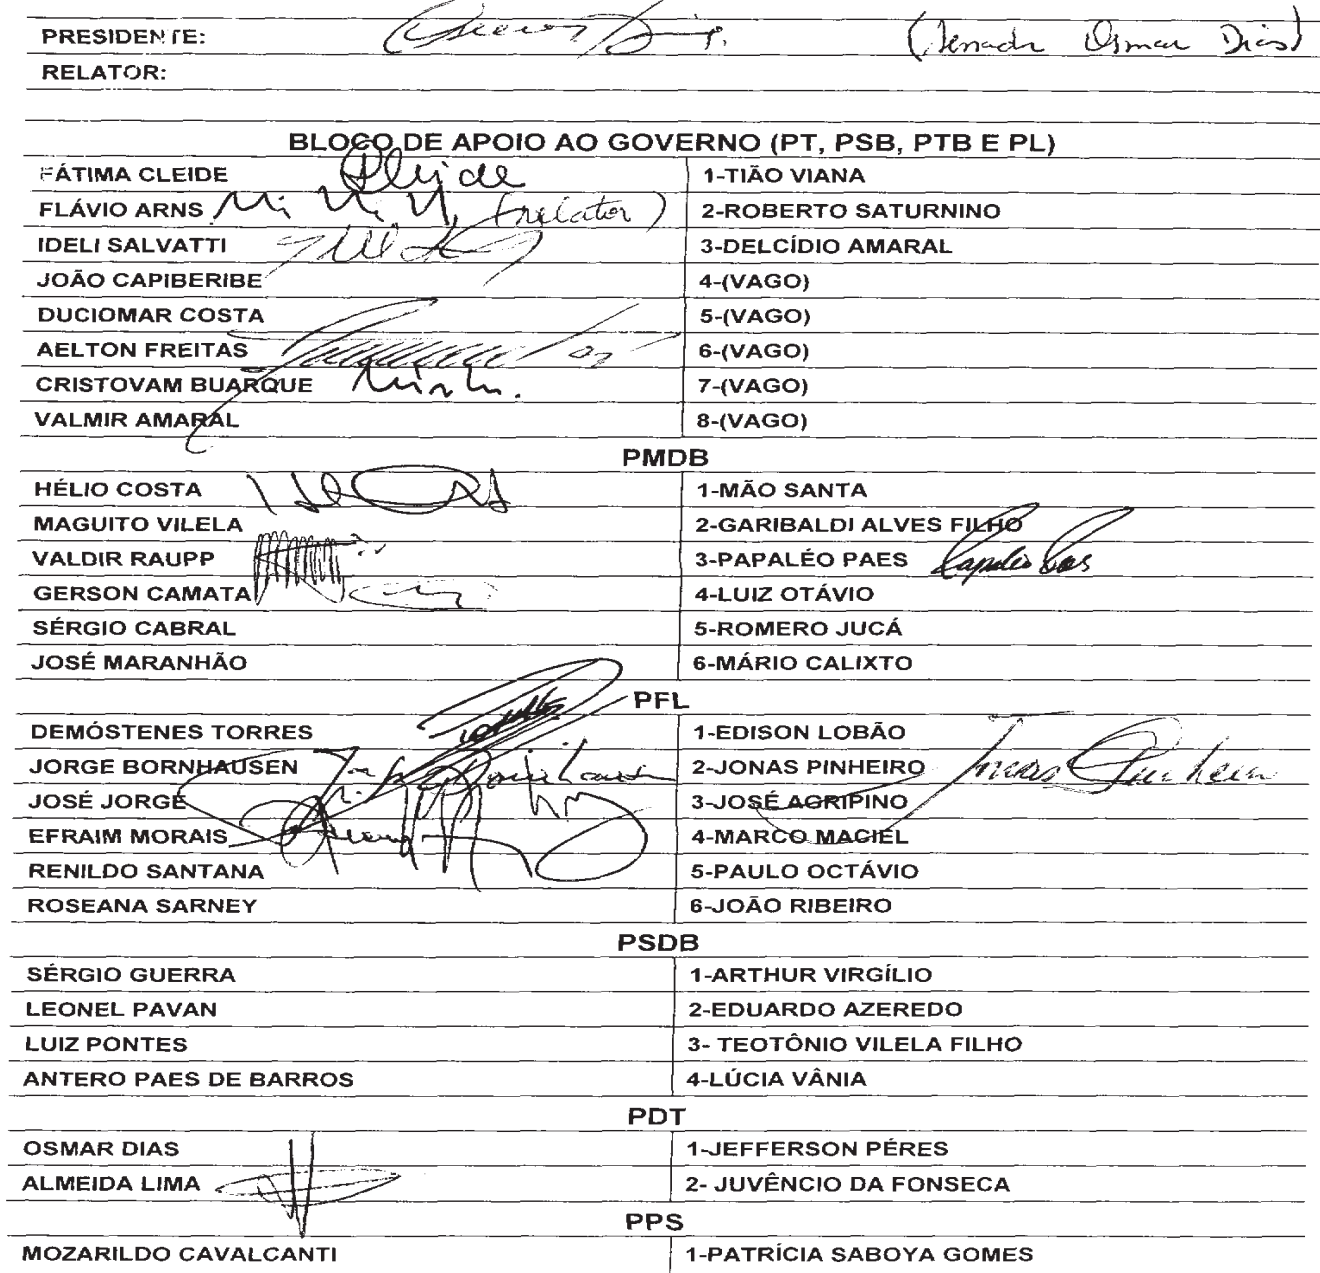 PRESIDENTE: (Senador Osmar Dias)
RELATOR:
BLOCO DE APOIO AO GOVERNO (PT, PSB, PTB E PL)
FÁTIMA CLEIDE Cleide 1-TIÃO VIANA
FLÁVIO ARNS (relator) 2-ROBERTO SATURNINO
IDELI SALVATTI 3-DELCÍDIO AMARAL
JOÃO CAPIBERIBE 4-(VAGO)
DUCIOMAR COSTA 5-(VAGO)
AELTON FREITAS 6-(VAGO)
CRISTOVAM BUARQUE 7-(VAGO)
VALMIR AMARAL 8-(VAGO)
PMDB
HÉLIO COSTA 1-MÃO SANTA
MAGUITO VILELA 2-GARIBALDI ALVES FILHO
VALDIR RAUPP 3-PAPALÉO PAES Papaléo Paes
GERSON CAMATA 4-LUIZ OTÁVIO
SÉRGIO CABRAL 5-ROMERO JUCÁ
JOSÉ MARANHÃO 6-MÁRIO CALIXTO
PFL
DEMÓSTENES TORRES 1-EDISON LOBÃO
JORGE BORNHAUSEN 2-JONAS PINHEIRO Jonas Pinheiro
JOSÉ JORGE 3-JOSÉ AGRIPINO
EFRAIM MORAIS 4-MARCO MACIEL
RENILDO SANTANA 5-PAULO OCTÁVIO
ROSEANA SARNEY 6-JOÃO RIBEIRO
PSDB
SÉRGIO GUERRA 1-ARTHUR VIRGÍLIO
LEONEL PAVAN 2-EDUARDO AZEREDO
LUIZ PONTES 3- TEOTÔNIO VILELA FILHO
ANTERO PAES DE BARROS 4-LÚCIA VÂNIA
PDT
OSMAR DIAS 1-JEFFERSON PÉRES
ALMEIDA LIMA 2- JUVÊNCIO DA FONSECA
PPS
MOZARILDO CAVALCANTI 1-PATRÍCIA SABOYA GOMES